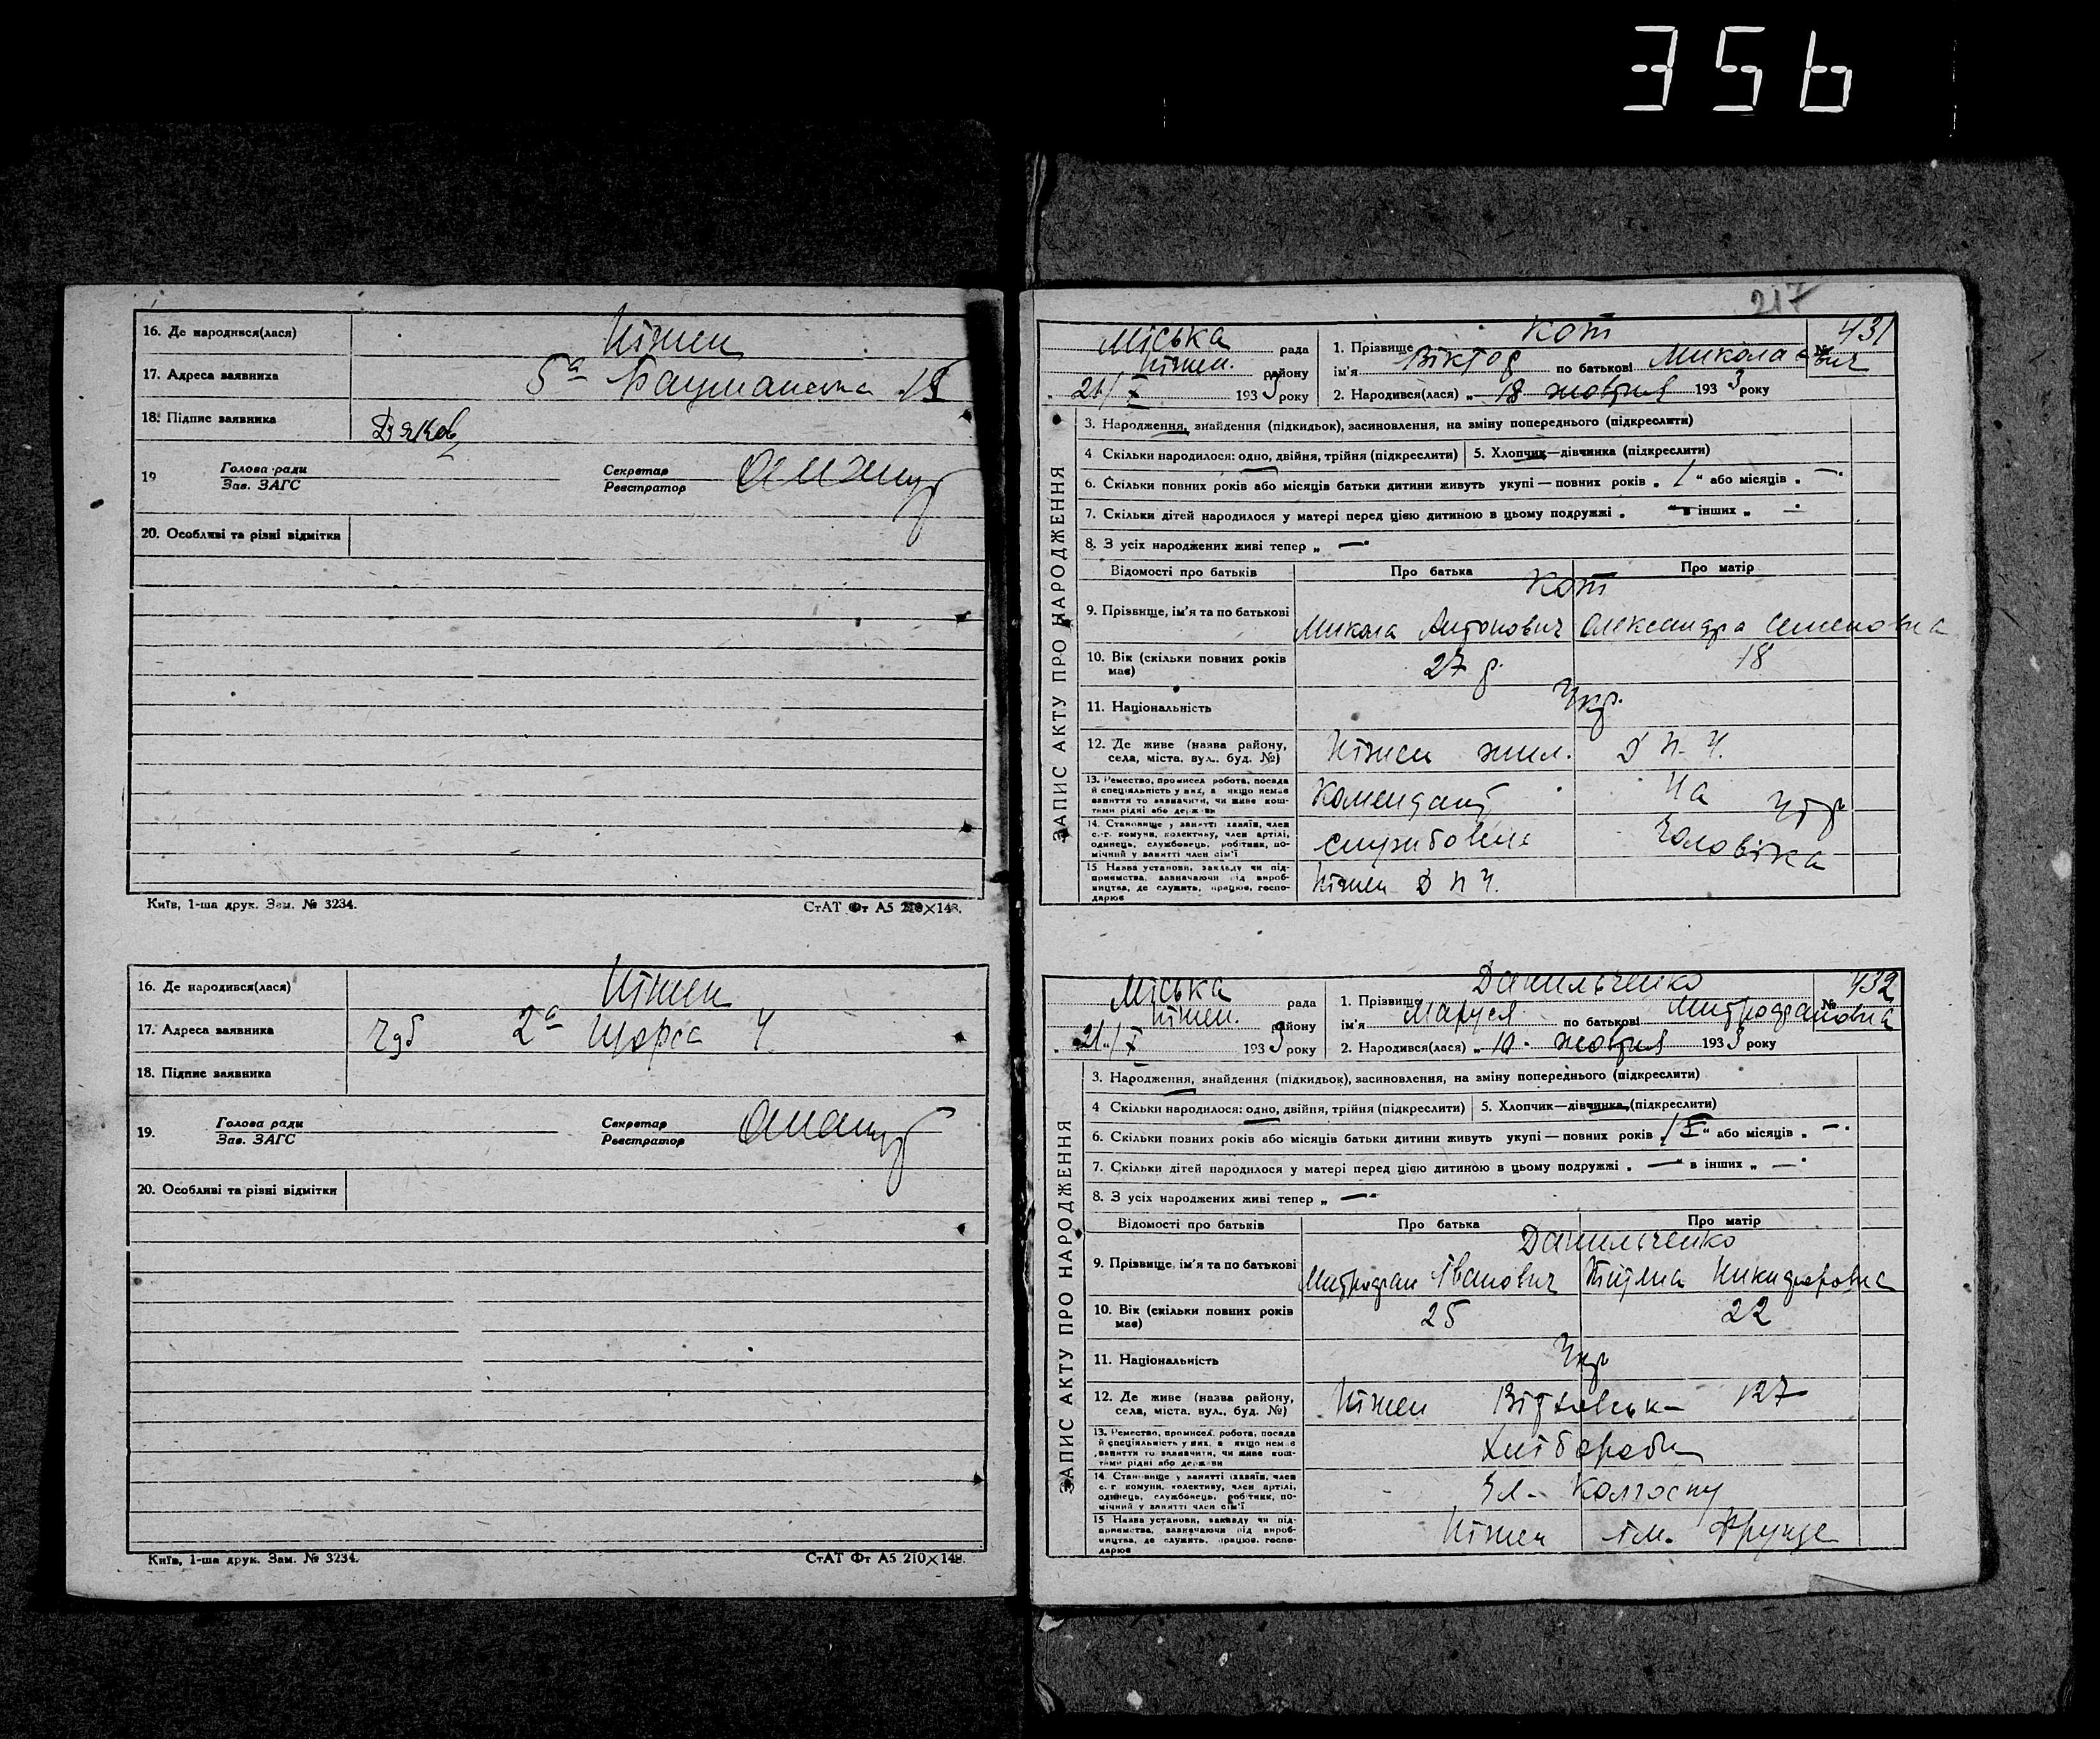 356
16. Де народився(лася) Ніжен
17. Адреса заявника 5а Бауманська
18. Підпис заявника Дяков
19 Голова ради Зав. ЗАГС Секретар Реєстратор
20. Особливі та різні відмітки
Київ, 1-ша друк. Зам. № 3234. СтАТ Фт А5 210×148.
16. Де народився(лася) Ніжен
17. Адреса заявника 2а Щорса 4
18. Підпис заявника
19. Голова ради Зав. ЗАГС Секретар Реєстратор
20. Особливі та різні відмітки
Київ, 1-ша друк. Зам. № 3234. СтАТ Фт А5 210×148.
217
ЗАПИС АКТУ ПРО НАРОДЖЕННЯ
Міська рада
Ніжен. району
21/X 1933 року
1. Прізвище Кот № 431
ім'я Віктор по батькові Миколаевич
2. Народився(лася) „ 18 жовтня 1933 року
3. Народження, знайдення (підкидьок), засиновлення, на зміну попереднього (підкреслити)
4 Скільки народилося: одно, двійня, трійня (підкреслити) 5. Хлопчик—дівчинка (підкреслити)
6. Скільки повних років або місяців батьки дитини живуть укупі — повних років „ 1 “ або місяців „ —
7. Скільки дітей народилося у матері перед цією дитиною в цьому подружжі „ — “ в інших „ —
8. З усіх народжених живі тепер „ —
Відомості про батьків Про батька Про матір
Кот
9. Прізвище, ім'я та по батькові Микола Антонович Олександра Семеновна
10. Вік (скільки повних років має) 27 р. 18
11. Національність Укр.
12. Де живе (назва району, села, міста, вул., буд. №) Ніжен жил. Д П. Ч.
13. Ремество, промисел, робота, посада й спеціяльність у них, а якщо немає заняття то зазначити, чи живе коштами рідні або держави Комендант На утр
14. Становище у занятті: хазяїн, член с.-г. комуни, колективу, член артілі, одинець, службовець, робітник, помічний у занятті член сім'ї службовець Чоловіка
15 Назва установи, закладу чи підприємства, зазначаючи рід виробництва, де служить, працює, господарює Ніжен Д П Ч.
ЗАПИС АКТУ ПРО НАРОДЖЕННЯ
Міська рада
Ніжен. району
21/X 1933 року
1. Прізвище Данильченко № 432
ім'я Маруся по батькові Митрофановна
2. Народився(лася) „ 10 жовтня 1933 року
3. Народження, знайдення (підкидьок), засиновлення, на зміну попереднього (підкреслити)
4 Скільки народилося: одно, двійня, трійня (підкреслити) 5. Хлопчик—дівчинка (підкреслити)
6. Скільки повних років або місяців батьки дитини живуть укупі — повних років “ або місяців „ —
7. Скільки дітей народилося у матері перед цією дитиною в цьому подружжі „ — “ в інших „ —
8. З усіх народжених живі тепер „ —
Відомості про батьків Про батька Про матір
Данильченко
9. Прізвище, ім'я та по батькові Митрофан Іванович Никифоровна
10. Вік (скільки повних років має) 25 22
11. Національність Укр
12. Де живе (назва району, села, міста, вул., буд. №) Ніжен 127
13. Ремество, промисел, робота, посада й спеціяльність у них, а якщо немає заняття то зазначити, чи живе коштами рідні або держави Хлібороби
14. Становище у занятті: хазяїн, член с.-г. комуни, колективу, член артілі, одинець, службовець, робітник, помічний у занятті член сім'ї Чл. Колгоспу
15 Назва установи, закладу чи підприємства, зазначаючи рід виробництва, де служить, працює, господарює Ніжен ім. Фрунзе